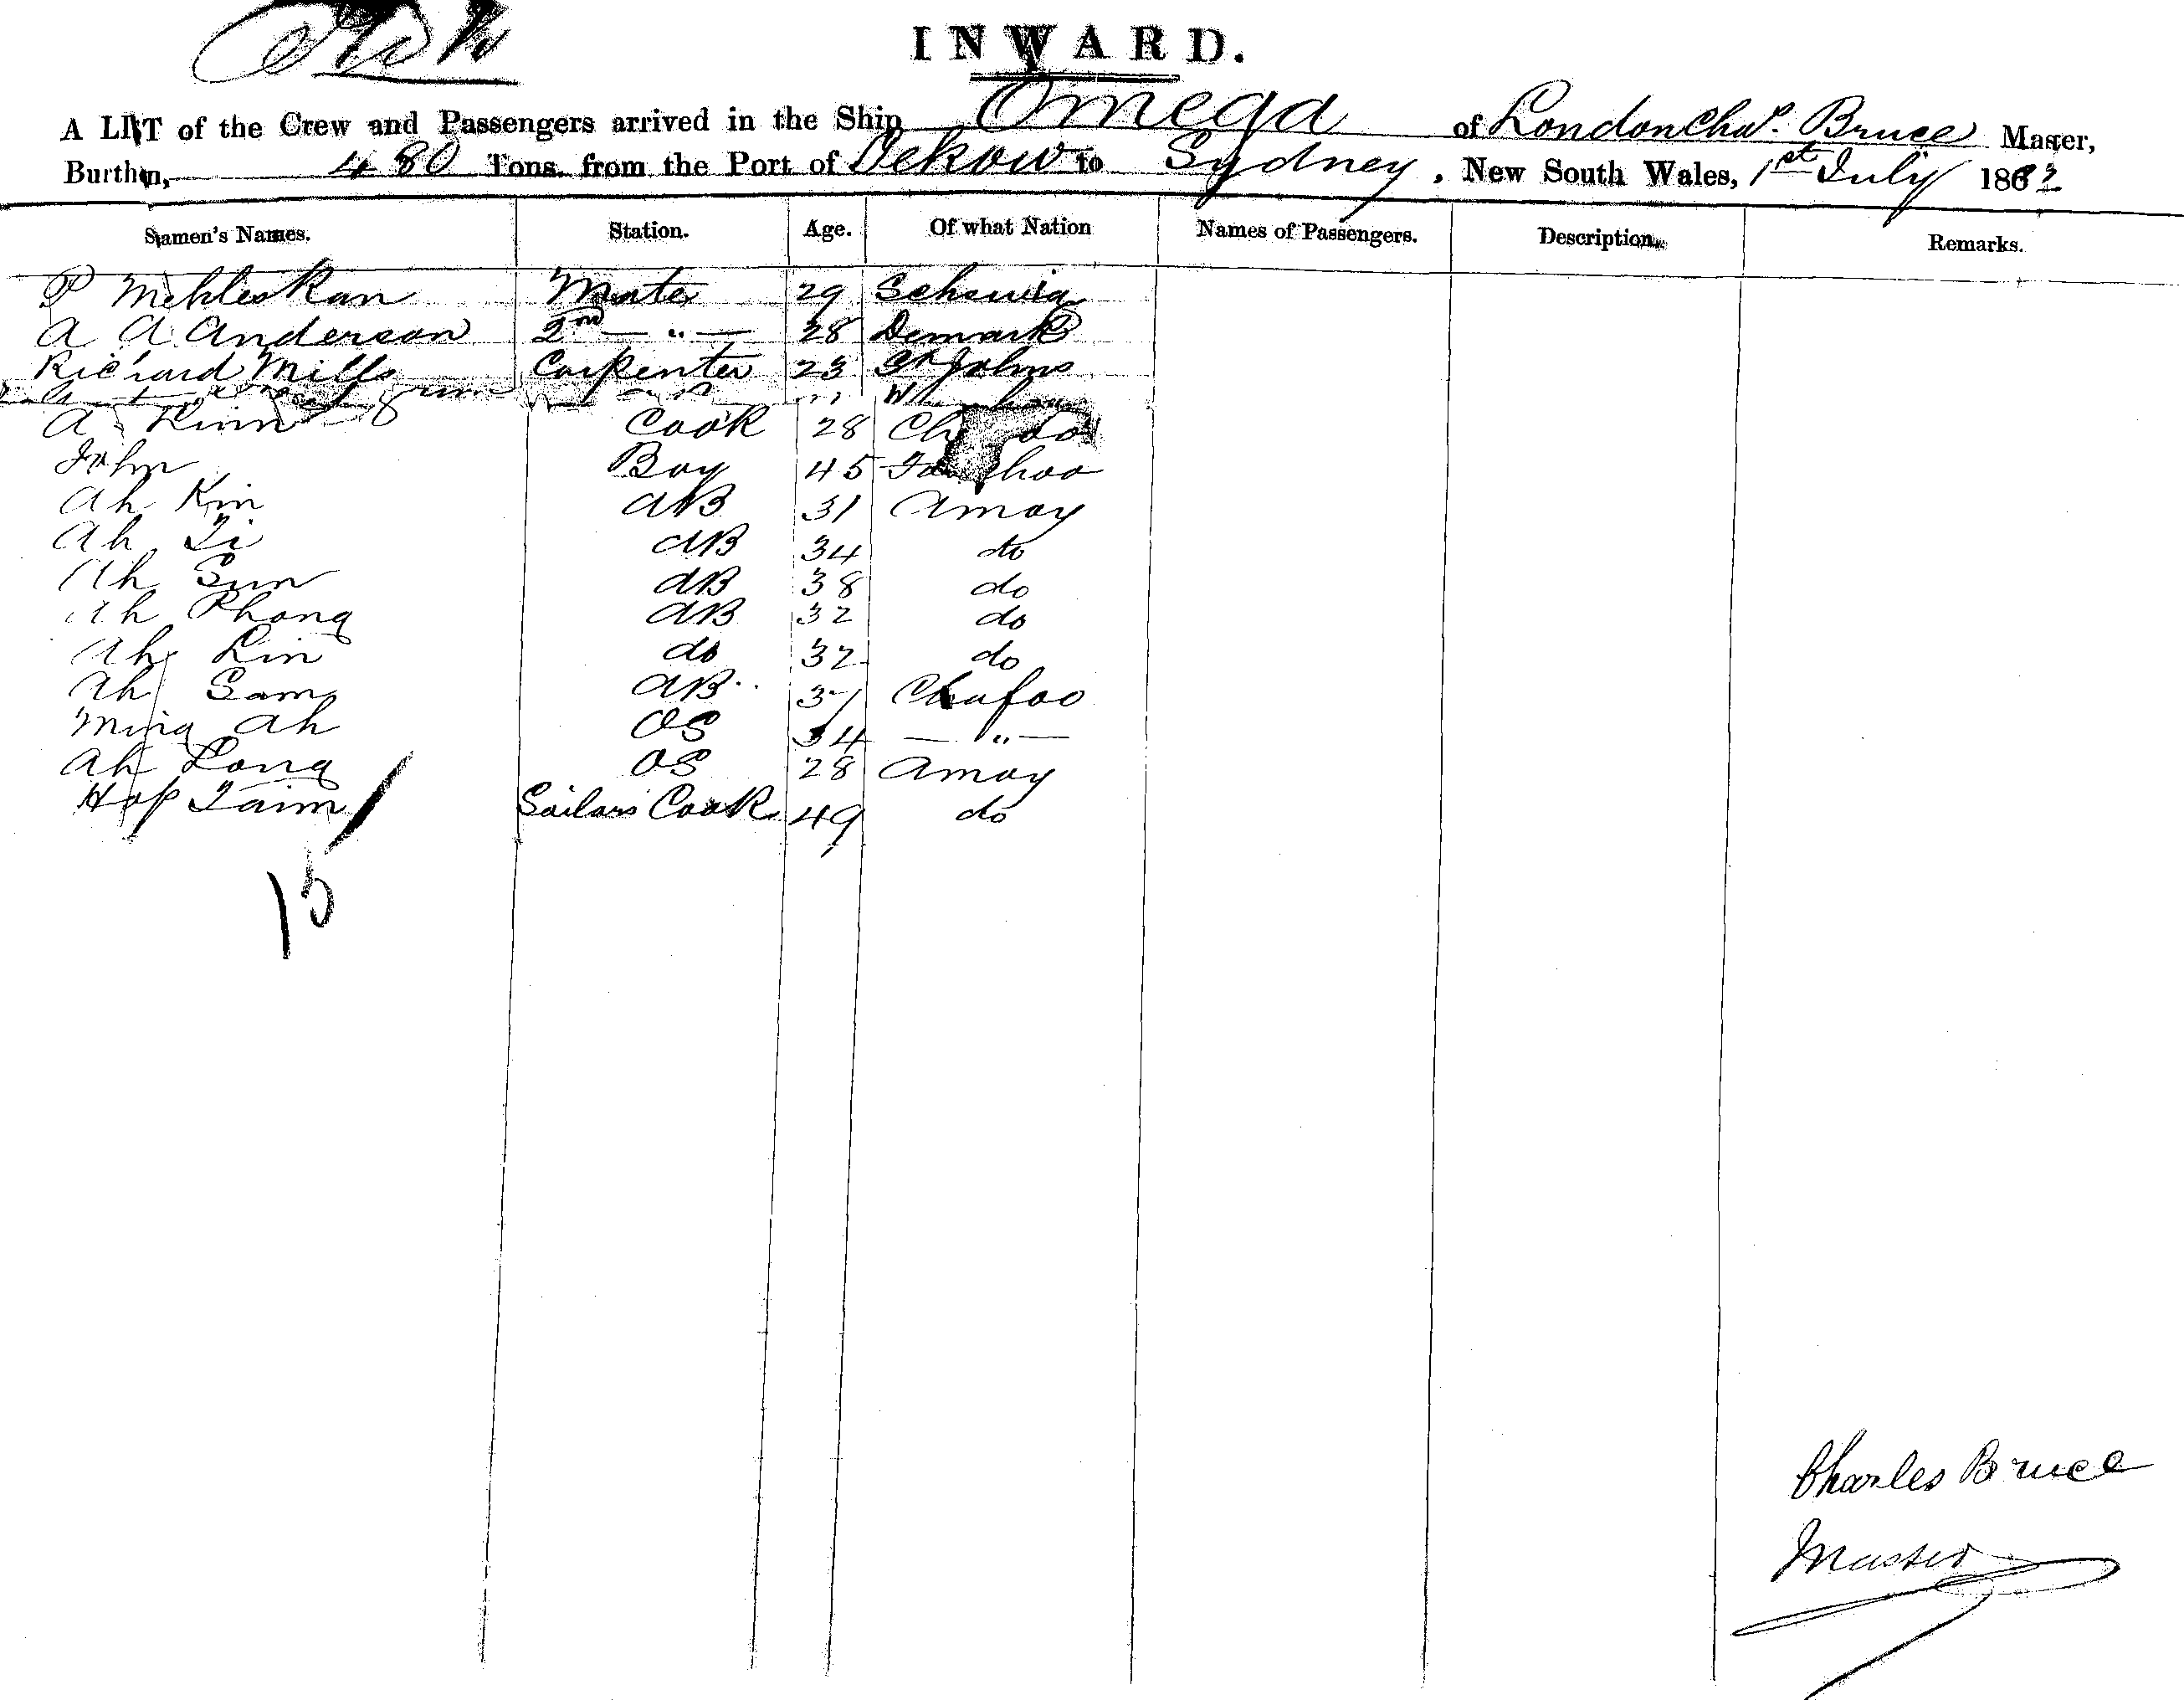 INWARD.
A LIST of the Crew and Passengers arrived in the Ship Omega of London Chas. Bruce Master,
Burthen, 480 Tons from the Port of Tekow to Sydney, New South Wales, 1st July 188
Seamen's Names. Station. Age. Of what Nation Names of Passengers. Description. Remarks.
P Mehleskan Mate 29 Schewig
A A Anderson 2nd — " — 28 Demark
Richard Mills Carpenter 23 St Johns
A Kinn Cook 28
John Boy 45
Ah Kin AB 31 Amoy
Ah Ti AB 34 do
Ah Sun AB 38 do
Ah Phong AB 32 do
Ah Lin do 32 do
Ah Sam AB 37 Chafoo
Ming Ah OS 34 — " —
Ah Long OS 28 Amoy
Hop Taim Sailors Cook 49 do
15
Charles Bruce
Master